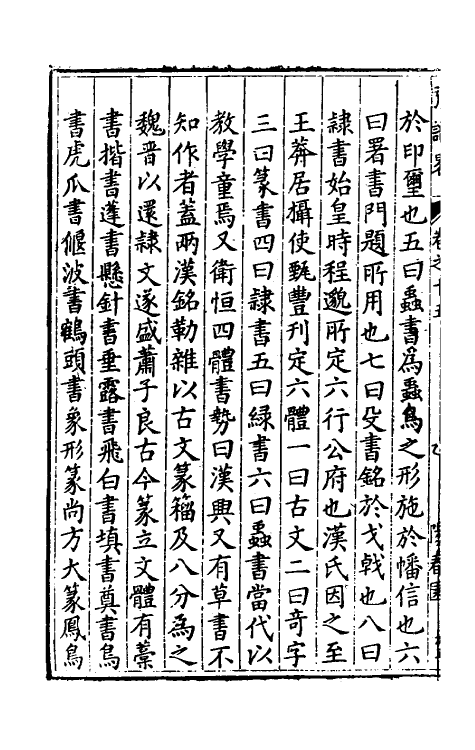 於印璽也五曰蟲書為蟲鳥之形施於幡信也六
曰署書門題所用也七曰殳書銘於戈戟也八曰
隷書始皇時程邈所定六行公府也漢氏因之至
王莽居攝使甄豐刋定六體一曰古文二曰奇字
三曰篆書四曰隷書五曰緑書六曰蟲書當代以
教學童焉又衛恒四體書勢曰漢興又有草書不
知作者蓋兩漢銘勒雜以古文篆籀及八分為之
魏晋以還隷文遂盛蕭子良古今篆立文體有藁
書揩書蓬書懸針書垂露書飛白書填書奠書鳥
書虎爪書偃波書鶴頭書象形篆尚方大篆鳳鳥
卷之十五